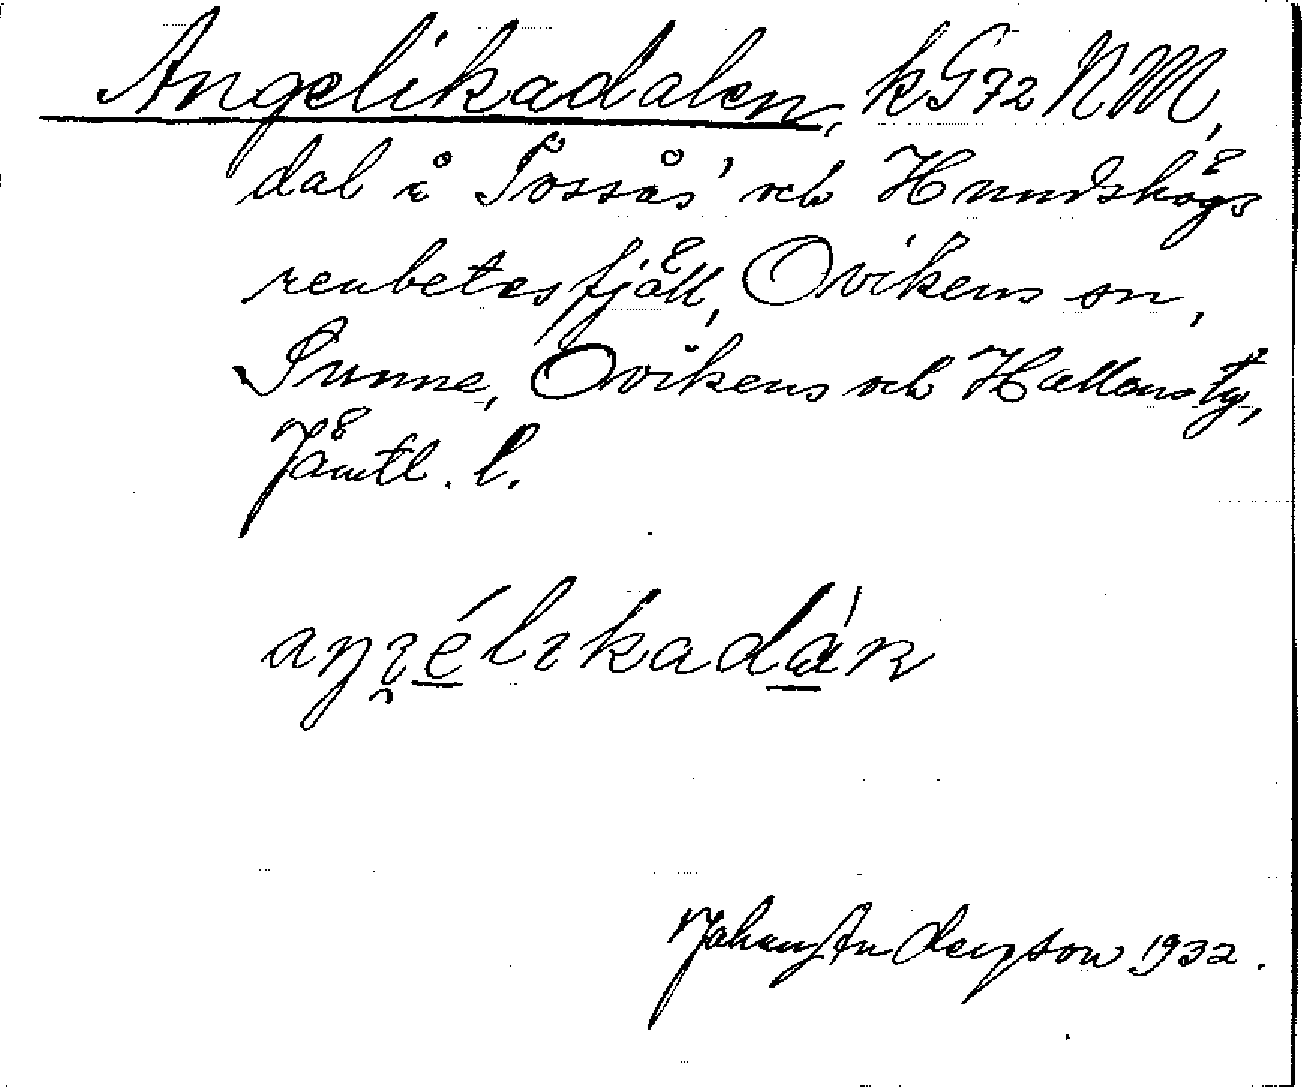 Angelikadalen, kG72 NM,
dal å Sössås' och Hundshögs
renbetesfjäll, Ovikens sn,
Sunne, Ovikens och Hallens tg,
Jämtl. l.
aŋɟélıkadán
Johan Anderson 1932.